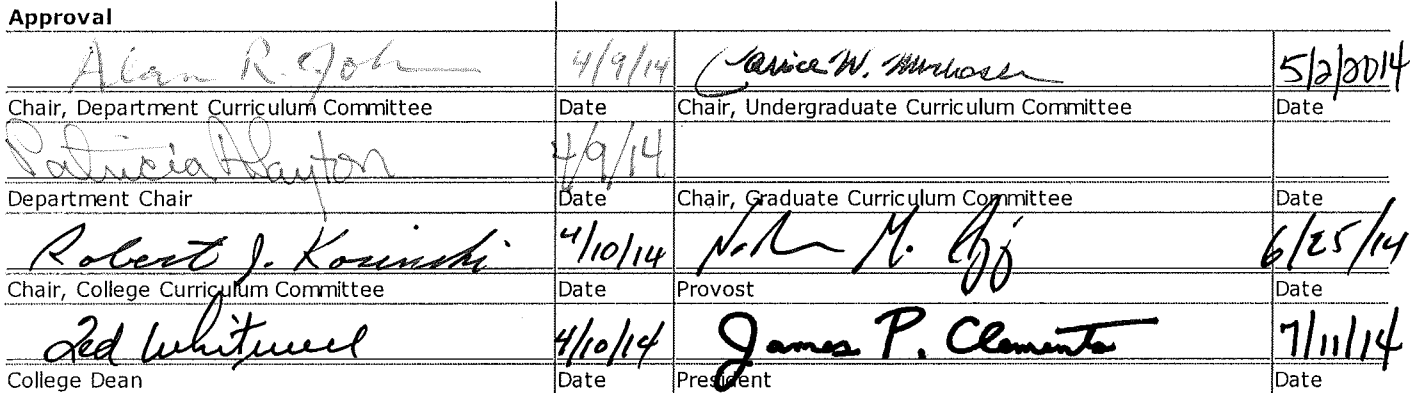 Approval
Alan R. Joh 4/9/14 Janice W. 5/2/2014
Chair, Department Curriculum Committee Date Chair, Undergraduate Curriculum Committee Date
Patricia Layton 4/9/14
Department Chair Date Chair, Graduate Curriculum Committee Date
Robert J. Kosinski 4/10/14 M. 6/25/14
Chair, College Curriculum Committee Date Provost Date
Ted Whitwell 4/10/14 James P. Clements 7/11/14
College Dean Date President Date